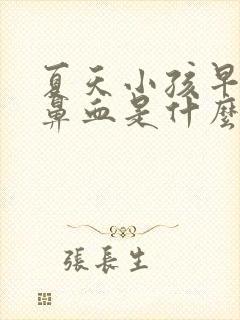 夏天小孩早
鼻血是什麼
張長生